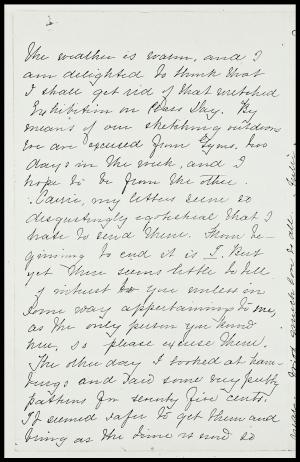 The weather is warm, and I
am delighted to think that
I shall get rid of that wretched
Exhibition on Class Day. By
means of our sketching outdoors
we are excused from Gym. two
days in the week, and I
hope to be from the other.
Carrie, my letters seem so
disgustingly egotistical that I
hate to send them. From be-
ginning to end it is I. But
yet there seems little to tell
of interest to you unless in
some way appertaining to me,
as the only person you know
here, so please excuse them.
The other day I looked at ham-
burgs and said some very pretty
patterns for seventy five cents.
It seemed safer to get them and
bring as the time is now so